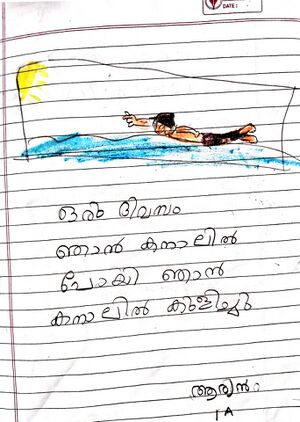 DATE:
ഒരു ദിവസം
ഞാൻ കനാലിൽ
പോയി ഞാൻ
കനാലിൽ കുളിച്ചു
ആര്യൻ
1 A